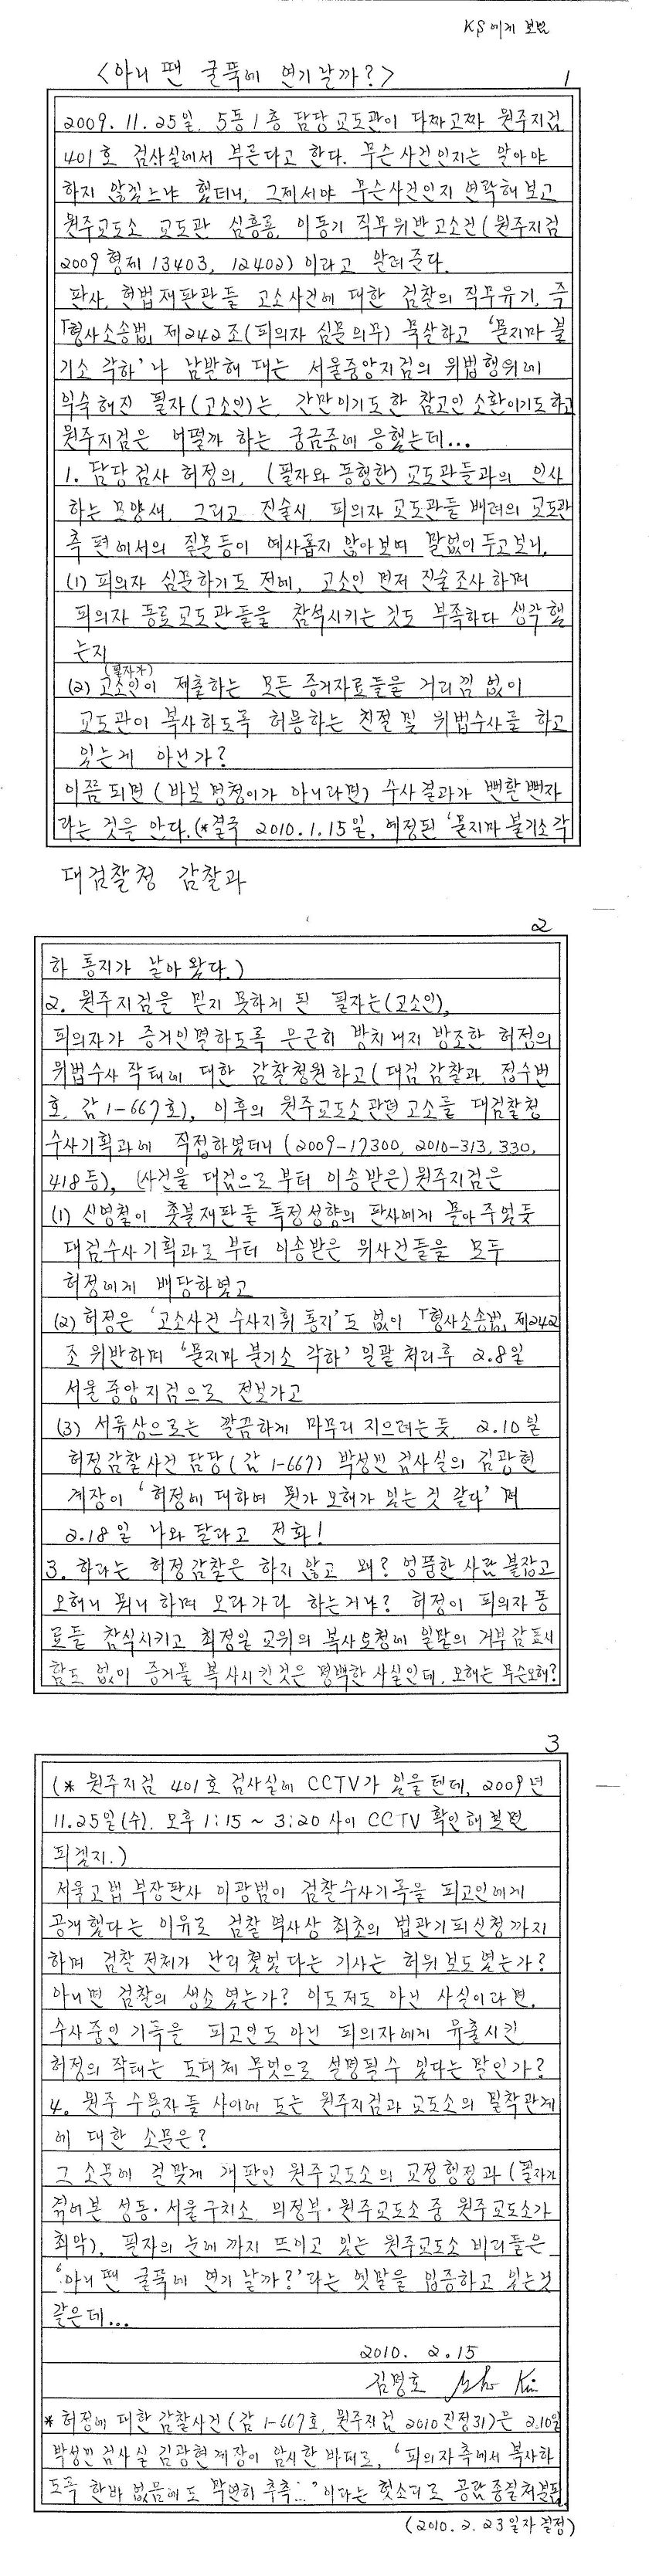 KS에게 보냄
<아니 땐 굴뚝에 연기날까?>
1
2009. 11. 25일, 5동1층 담당교도관이 다짜고짜 원주지검
401호 검사실에서 부른다고 한다. 무슨사건인지는 알아야
하지 않겠느냐 했더니, 그제서야 무슨사건인지 연락해보고
원주교도소 교도관 심흥룡, 이동기 직무위반고소건(원주지검
2009 형제 13403, 12402)이라고 알려준다.
판사, 헌법재판관들 고소사건에 대한 검찰의 직무유기, 즉
「형사소송법」제242조(피의자 심문의무) 묵살하고 '묻지마 불
기소 각하'나 남발해 대는 서울중앙지검의 위법행위에
익숙해진 필자(고소인)는, 간만이기도한 참고인 소환이기도하고
원주지검은 어떨까 하는 궁금증에 응했는데...
1. 담당검사 허정의, (필자와 동행한) 교도관들과의 인사
하는 모양새, 그리고 진술시, 피의자 교도관들 배려의 교도관
측편에서의 질문등이 예사롭지 않아보여 말없이 두고보니,
(1) 피의자 심문하기도 전에, 고소인 먼저 진술조사하며
피의자 동료교도관들을 참석시키는 것도 부족하다 생각했
는지
(필자가)
(2) 고소인이 제출하는 모든 증거자료들을 거리낌 없이
교도관이 복사하도록 허용하는 친절 및 위법수사를 하고
있는게 아닌가?
이쯤되면 (바보 멍청이가 아니라면) 수사결과가 뻔할 뻔자
라는 것을 안다.(*결국 2010.1.15일, 예정된 '묻지마 불기소각
대검찰청 감찰과
2
하 통지가 날아 왔다.)
2. 원주지검을 믿지 못하게 된 필자는(고소인),
피의자가 증거인멸하도록 은근히 방치내지 방조한 허정의
위법수사 작태에 대한 감찰청원하고(대검 감찰과, 접수번
호, 감1-667호), 이후의 원주교도소관련고소들 대검찰청
수사기획과에 직접하였더니 (2009-17300, 2010-313, 330,
418등), (사건을 대검으로 부터 이송받은) 원주지검은
(1) 신영철이 촛불재판들 특정성향의 판사에게 몰아주었듯
대검수사기획과로 부터 이송받은 위사건들을 모두
허정에게 배당하였고
(2) 허정은 '고소사건 수사지휘 통지'도 없이 「형사소송법」제242
조 위반하며 '묻지마 불기소 각하' 일괄 처리후 2.8일
서울중앙지검으로 전보가고
(3) 서류상으로는 깔끔하게 마무리 지으려는듯, 2.10일
허정감찰사건 담당(감1-667) 박성민 검사실의 김광현
계장이 '허정에 대하여 뭔가 오해가 있는 것 같다'며
2.18일 나와 달라고 전화!
3. 하라는 허정감찰은 하지 않고 왜? 엉뚱한 사람 붙잡고
오해니 뭐니 하며 오라가라 하는거냐? 허정이 피의자 동
료들 참석시키고 최정일 교위의 복사요청에 일말의 거부감표시
함도 없이 증거물 복사시킨것은 명백한 사실인데, 오해는 무슨오해?
3
(* 원주지검 401호 검사실에 CCTV가 있을텐데, 2009년
11.25일(수), 오후 1:15 ~ 3:20 사이 CCTV 확인해보면
되겠지.)
서울고법 부장판사 이광범이 검찰수사기록을 피고인에게
공개했다는 이유로 검찰 역사상 최초의 법관기피신청까지
하며 검찰전체가 난리쳤었다는 기사는 허위보도였는가?
아니면 검찰의 생쇼였는가? 이도저도 아닌 사실이라면,
수사중인 기록을 피고인도 아닌 피의자에게 유출시킨
허정의 작태는 도대체 무엇으로 설명될수 있다는 말인가?
4. 원주 수용자들 사이에 도는 원주지검과 교도소의 밀착관계
에 대한 소문은?
그 소문에 걸맞게 개판인 원주교도소의 교정행정과 (필자가
겪어본 성동·서울구치소, 의정부·원주교도소 중 원주교도소가
최악), 필자의 눈에 까지 뜨이고 있는 원주교도소 비리들은
'아니 땐 굴뚝에 연기 날까?'라는 옛말을 입증하고 있는것
같은데...
2010. 2.15
김명호 Kim
*허정에 대한 감찰사건(감1-667호, 원주지검 2010진정31)은 2.10일
박성민 검사실 김광현계장이 암시한 바대로, "피의자측에서 복사하
도록 한바 없음에도 막연히 추측..."이라는 헛소리로 공람종결처분됨
(2010. 2. 23일자 결정)